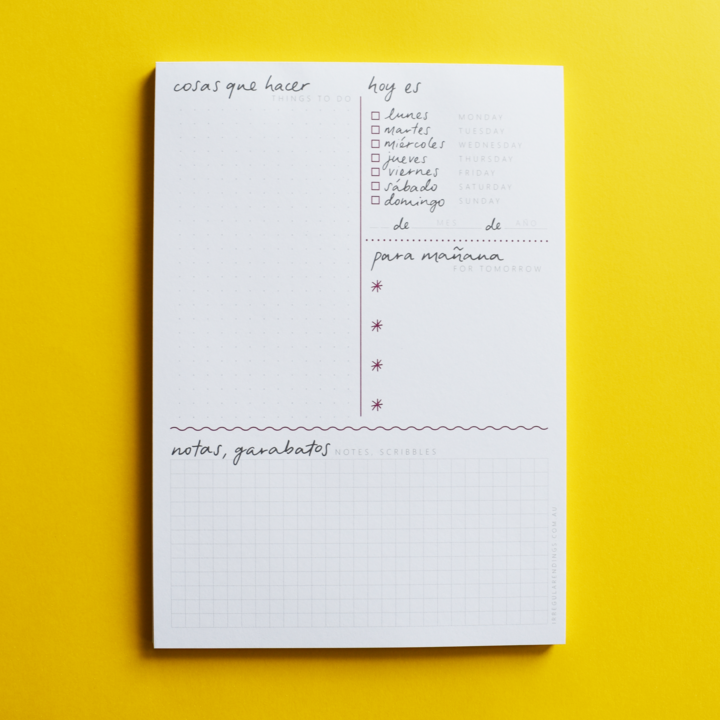 cosas que hacer
THINGS TO DO
hoy es
lunes MONDAY
martes TUESDAY
miércoles WEDNESDAY
jueves THURSDAY
viernes FRIDAY
sábado SATURDAY
domingo SUNDAY
de MES de AÑO
para mañana
FOR TOMORROW
notas, garabatos NOTES, SCRIBBLES
IRREGULARENDINGS.COM.AU